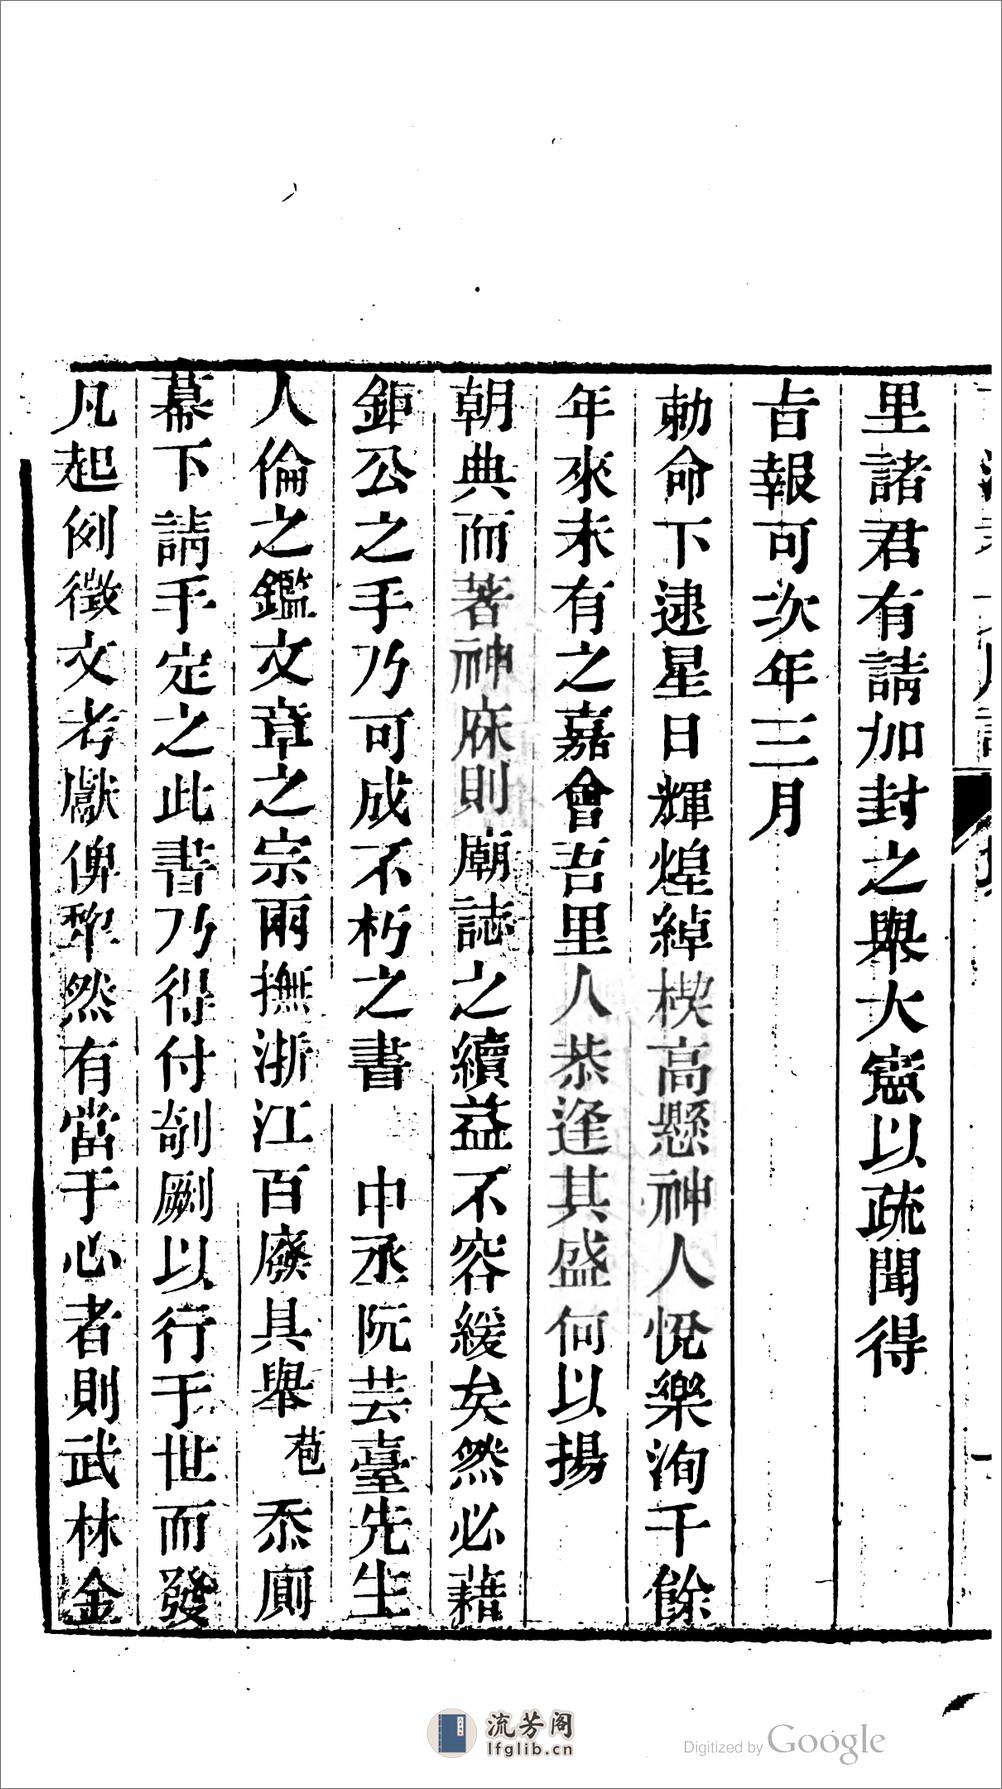 里諸君有請加封之舉大憲以疏聞得
旨報可次年三月
勅命下逮星日輝煌綽楔高懸神人悅樂洵千餘
年來未有之嘉會吾里人恭逢其盛何以揚
朝典而著神庥則廟誌之續益不容緩矣然必藉
鉅公之手乃可成不朽之書　中丞阮芸臺先生
人倫之鑑文章之宗兩撫浙江百廢具舉苞忝廁
幕下請手定之此書乃得付剞劂以行于世而發
凡起例徵文考獻俾犂然有當于心者則武林金
流芳阁
lfglib.cn
Digitized by Google